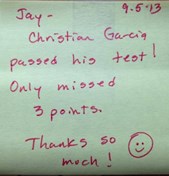 Jay-
9.5.13
Christian Garcia
passed his test!
Only missed
3 points.
Thanks so
much!